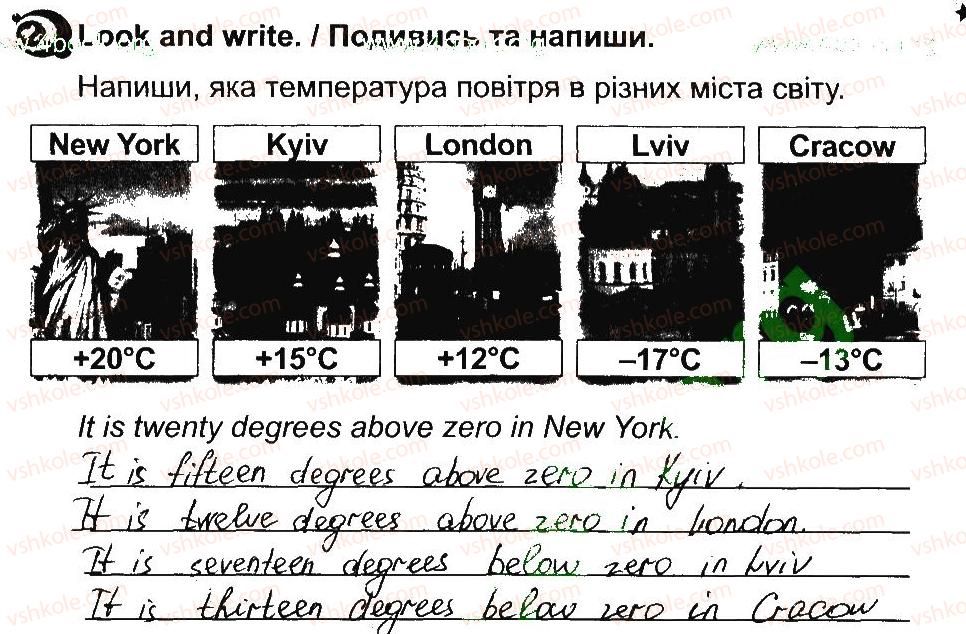 2 Look and write. / Подивись та напиши.
Напиши, яка температура повітря в різних міста світу.
New York Kyiv London Lviv Cracow
+20°C +15°C +12°C –17°C –13°C
It is twenty degrees above zero in New York.
It is fifteen degrees above zero in Kyiv.
It is twelve degrees above zero in London.
It is seventeen degrees below zero in Lviv
It is thirteen degrees below zero in Cracow
vshkole.com